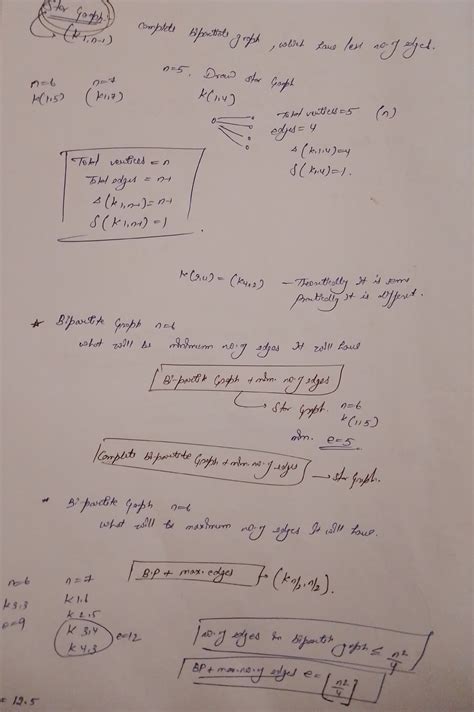 Star Graph.
(K1,n-1) Complete Bipartite graph, which have less no. of edges.
n=5. Draw star Graph
n=6 n=7
K(1,5) (K1,7) K(1,4)
Total vertices = 5 (n)
edges = 4
Δ(K1,4)=4
δ(K1,4)=1.
Total vertices = n
Total edges = n-1
Δ(K1,n-1)=n-1
δ(K1,n-1)=1
= (K4,2) - Theoritically it is same
practically it is different.
* Bipartite Graph n=6
what will be minimum no. of edges it will have
Bi-partite Graph + min. no. of edges
Star Graph. n=6
K(1,5)
min. e=5.
Complete Bi-partite Graph + min. no. of edges → Star Graph.
* Bi-partite Graph n=6
what will be maximum no. of edges it will have.
B.P + max. edges → (K n/2, n/2).
n=6 n=7
K3,3 K1,6
e=9 K2,5
K3,4 e=12
K4,3
no. of edges in Bipartite graph ≤ n²/4
BP + max. no. of edges e = ⌊n²/4⌋
= 12.5